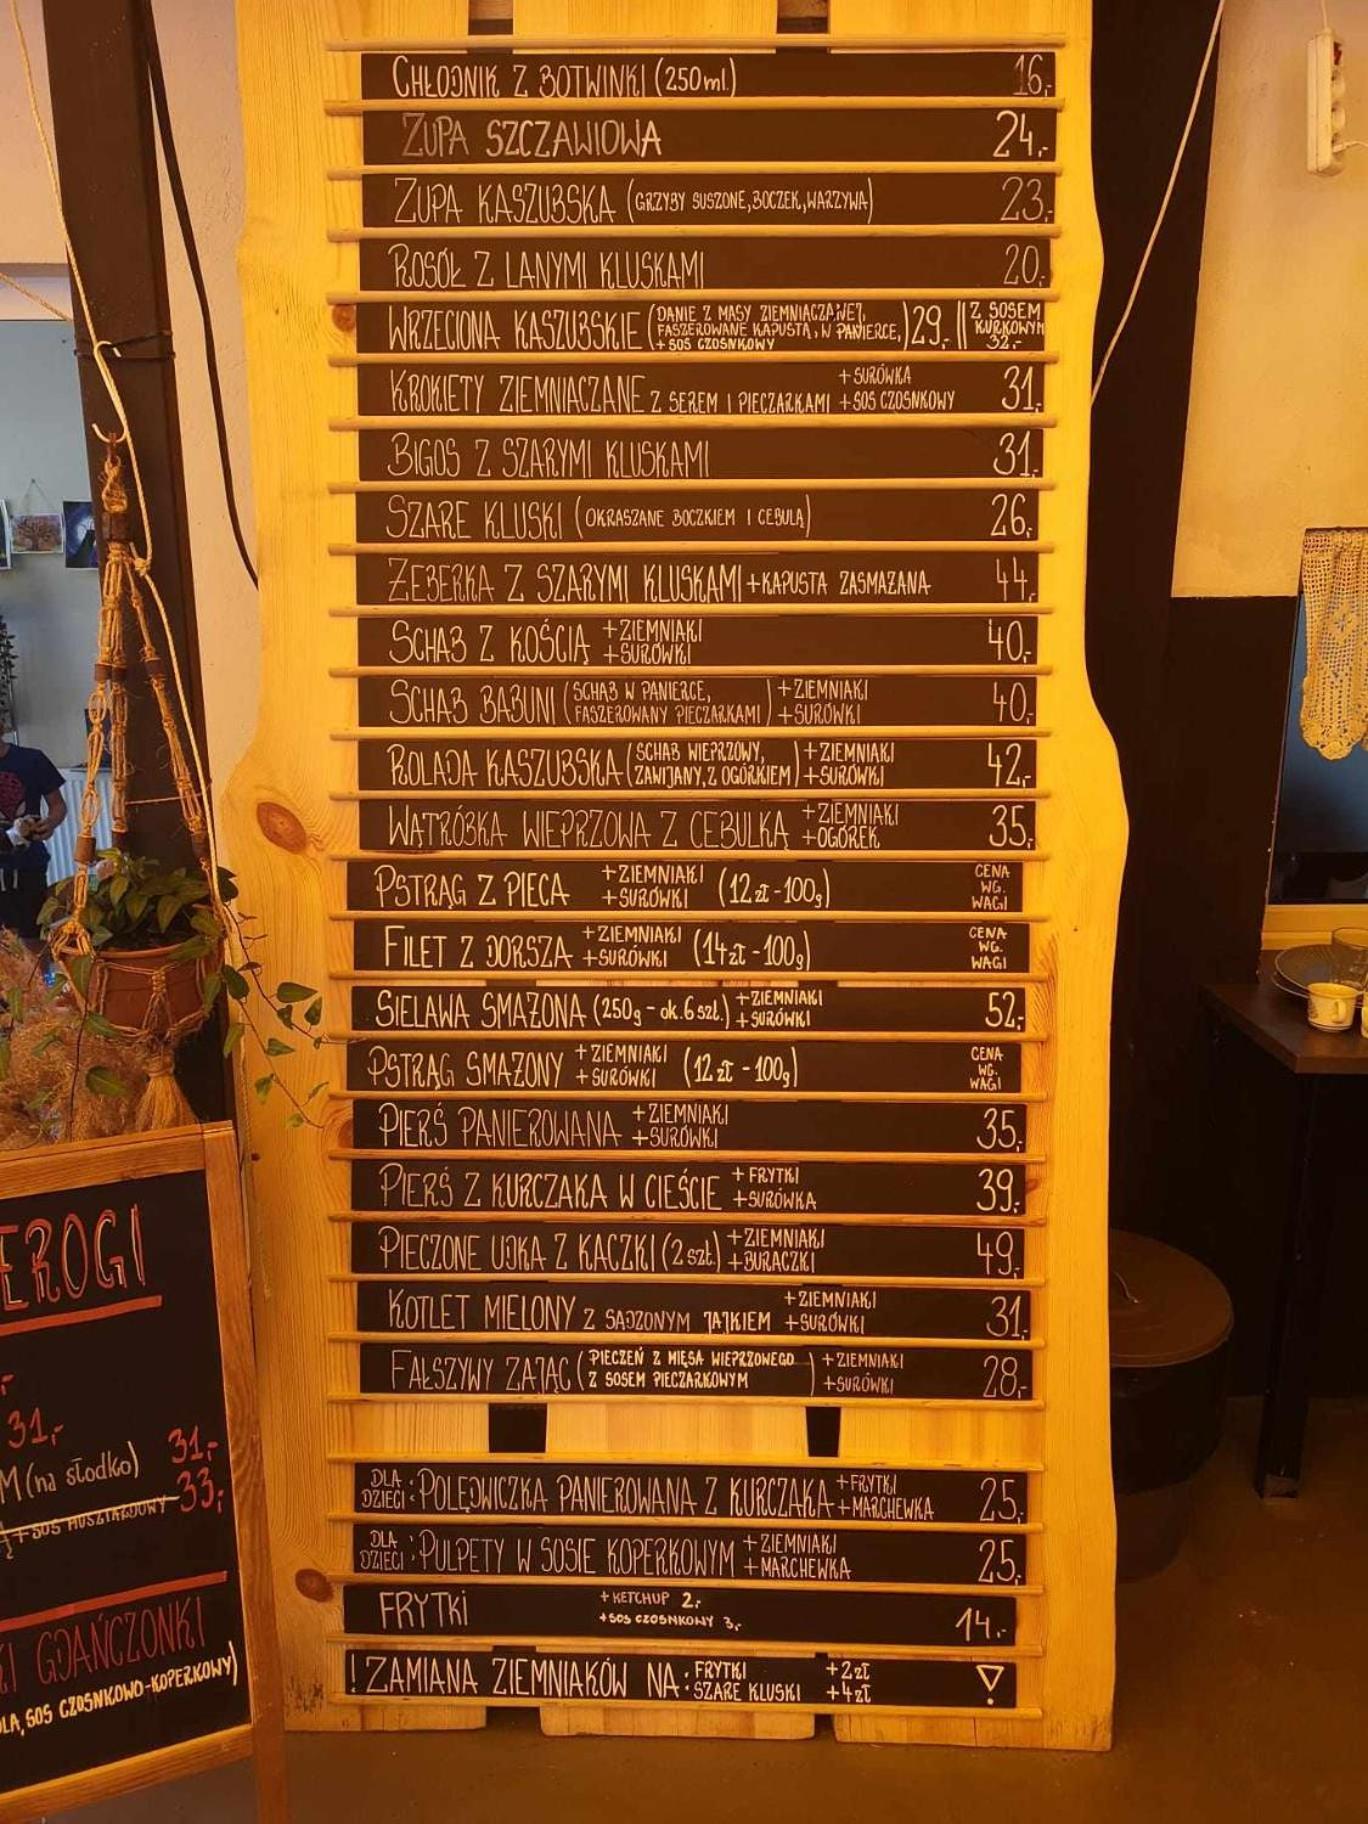 CHŁODNIK Z BOTWINKI (250ml.) 16,-
ZUPA SZCZAWIOWA 24,-
ZUPA KASZUBSKA (GRZYBY SUSZONE, BOCZEK, WARZYWA) 23,-
ROSÓŁ Z LANYMI KLUSKAMI 20,-
WRZECIONA KASZUBSKIE (DANIE Z MASY ZIEMNIACZANEJ, FASZEROWANE KAPUSTĄ, W PANIERCE, + SOS CZOSNKOWY) 29,- || Z SOSEM KURKOWYM 32,-
KROKIETY ZIEMNIACZANE Z SEREM I PIECZARKAMI + SURÓWKA + SOS CZOSNKOWY 31,-
BIGOS Z SZARYMI KLUSKAMI 31,-
SZARE KLUSKI (OKRASZANE BOCZKIEM I CEBULĄ) 26,-
ŻEBERKA Z SZARYMI KLUSKAMI + KAPUSTA ZASMAŻANA 44,-
SCHAB Z KOŚCIĄ +ZIEMNIAKI +SURÓWKI 40,-
SCHAB BABUNI (SCHAB W PANIERCE, FASZEROWANY PIECZARKAMI) +ZIEMNIAKI +SURÓWKI 40,-
ROLADA KASZUBSKA (SCHAB WIEPRZOWY, ZAWIJANY, Z OGÓRKIEM) +ZIEMNIAKI +SURÓWKI 42,-
WĄTRÓBKA WIEPRZOWA Z CEBULKĄ +ZIEMNIAKI +OGÓREK 35,-
PSTRĄG Z PIECA +ZIEMNIAKI +SURÓWKI (12 zł - 100g) CENA WG. WAGI
FILET Z DORSZA +ZIEMNIAKI +SURÓWKI (14 zł - 100g) CENA WG. WAGI
SIELAWA SMAŻONA (250g - ok. 6 szt.) +ZIEMNIAKI +SURÓWKI 52,-
PSTRĄG SMAŻONY +ZIEMNIAKI +SURÓWKI (12 zł - 100g) CENA WG. WAGI
PIERŚ PANIEROWANA +ZIEMNIAKI +SURÓWKI 35,-
PIERŚ Z KURCZAKA W CIEŚCIE + FRYTKI +SURÓWKA 39,-
PIECZONE UDKA Z KACZKI (2 szt.) +ZIEMNIAKI +BURACZKI 49,-
KOTLET MIELONY Z SADZONYM JAJKIEM +ZIEMNIAKI +SURÓWKI 31,-
FAŁSZYWY ZAJĄC (PIECZEŃ Z MIĘSA WIEPRZOWEGO Z SOSEM PIECZARKOWYM) +ZIEMNIAKI +SURÓWKI 28,-
DLA DZIECI: POLĘDWICZKA PANIEROWANA Z KURCZAKA +FRYTKI +MARCHEWKA 25,-
DLA DZIECI: PULPETY W SOSIE KOPERKOWYM +ZIEMNIAKI +MARCHEWKA 25,-
FRYTKI + KETCHUP 2,- +SOS CZOSNKOWY 3,- 14,-
! ZAMIANA ZIEMNIAKÓW NA: FRYTKI +2 zł SZARE KLUSKI +4 zł
EROGI
31,-
M (na słodko) 31,-
+ SOS MUSZTARDOWY 33,-
KI GDAŃCZONKI
LA, SOS CZOSNKOWO-KOPERKOWY)